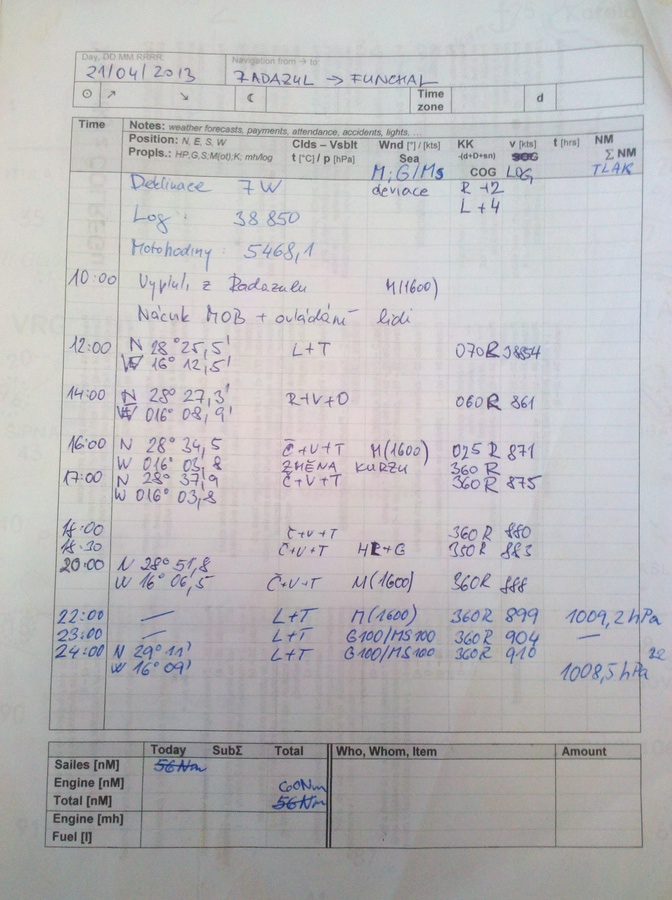 Day, DD.MM.RRRR Navigation from → to:
21/04/2013 RADAZUL → FUNCHAL
Time zone d
Time Notes: weather forecasts, payments, attendance, accidents, lights, ...
Position: N, E, S, W Clds – Vsblt Wnd [°] / [kts] KK v [kts] t [hrs] NM
Propls.: HP,G,S;M(ot);K; mh/log t [°C] / p [hPa] Sea -(d+D+sn) SOG Σ NM
M;G/Ms COG LOG TLAK
Deklinace 7 W deviace R +2
L +4
Log : 38 850
Motohodiny : 5468,1
10:00 Vypluli z Radazulu M(1600)
Nácvik MOB + ovládání lidi
12:00 N 28° 25,5' L+T 070R 38854
W 16° 12,5'
14:00 N 28° 27,3' R+V+O 060R 861
W 016° 08,9'
16:00 N 28° 34,5 Č+V+T M(1600) 025R 871
W 016° 03,8 ZMĚNA KURZU 360R
17:00 N 28° 37,9 Č+V+T 360R 875
W 016° 03,8
18:00 Č+V+T 360R 880
18:30 Č+V+T +G 350R 883
20:00 N 28° 51,8
W 16° 06,5 Č+V+T M(1600) 360R 888
22:00 — L+T M(1600) 360R 899 1009,2 hPa
23:00 — L+T G100/MS100 360R 904 —
24:00 N 29° 11' L+T G100/MS100 360R 910 22
W 16° 09' 1008,5 hPa
Today SubΣ Total Who, Whom, Item Amount
Sailes [nM] 56Nm
Engine [nM] 60Nm
Total [nM] 56Nm
Engine [mh]
Fuel [l]